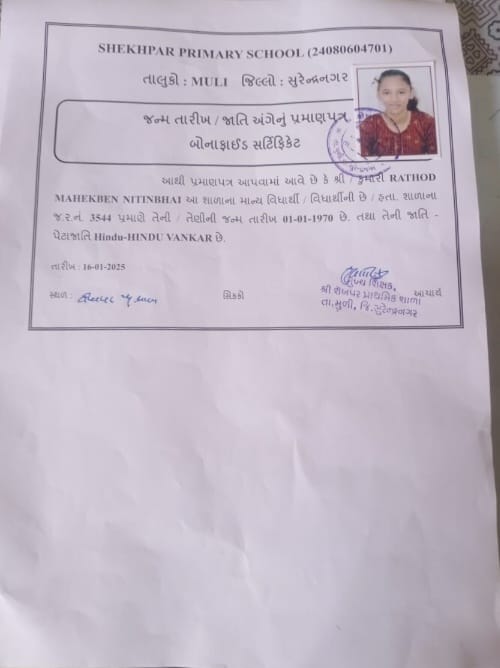 SHEKHPAR PRIMARY SCHOOL (24080604701)
તાલુકો : MULI જિલ્લો : સુરેન્દ્રનગર
જન્મ તારીખ / જાતિ અંગેનું પ્રમાણપત્ર
બોનાફાઈડ સર્ટિફિકેટ
આથી પ્રમાણપત્ર આપવામાં આવે છે કે શ્રી / કુમારી RATHOD
MAHEKBEN NITINBHAI આ શાળાના માન્ય વિધાર્થી / વિધાર્થીની છે / હતા. શાળાના
જ.ર.નં. 3544 પ્રમાણે તેની / તેણીની જન્મ તારીખ 01-01-1970 છે. તથા તેની જાતિ -
પેટાજાતિ Hindu-HINDU VANKAR છે.
તારીખ : 16-01-2025
સ્થળ :
સિક્કો
આચાર્ય
મુખ્ય શિક્ષક,
શ્રી શેખપર પ્રાથમિક શાળા
તા.મુળી, જિ.સુરેન્દ્રનગર